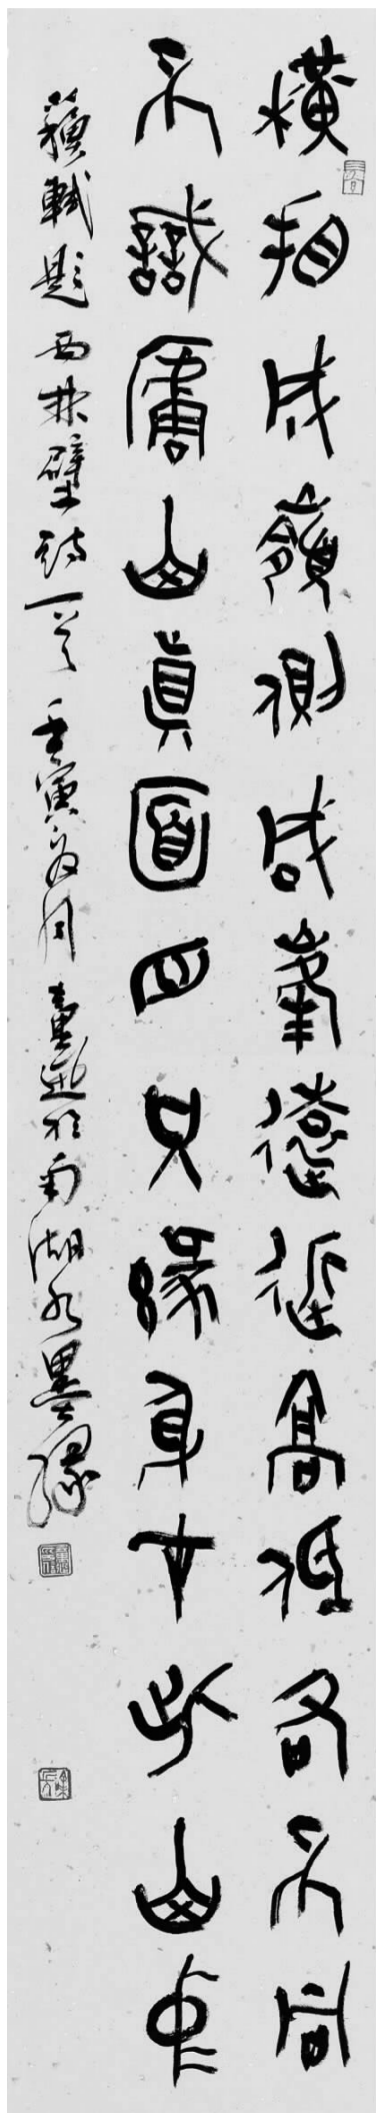 橫看成嶺側成峯遠近高低各不同
不識廬山真面目只緣身在此山中
蘇軾題西林壁詩一首 壬寅夏月 於南湖水墨緣